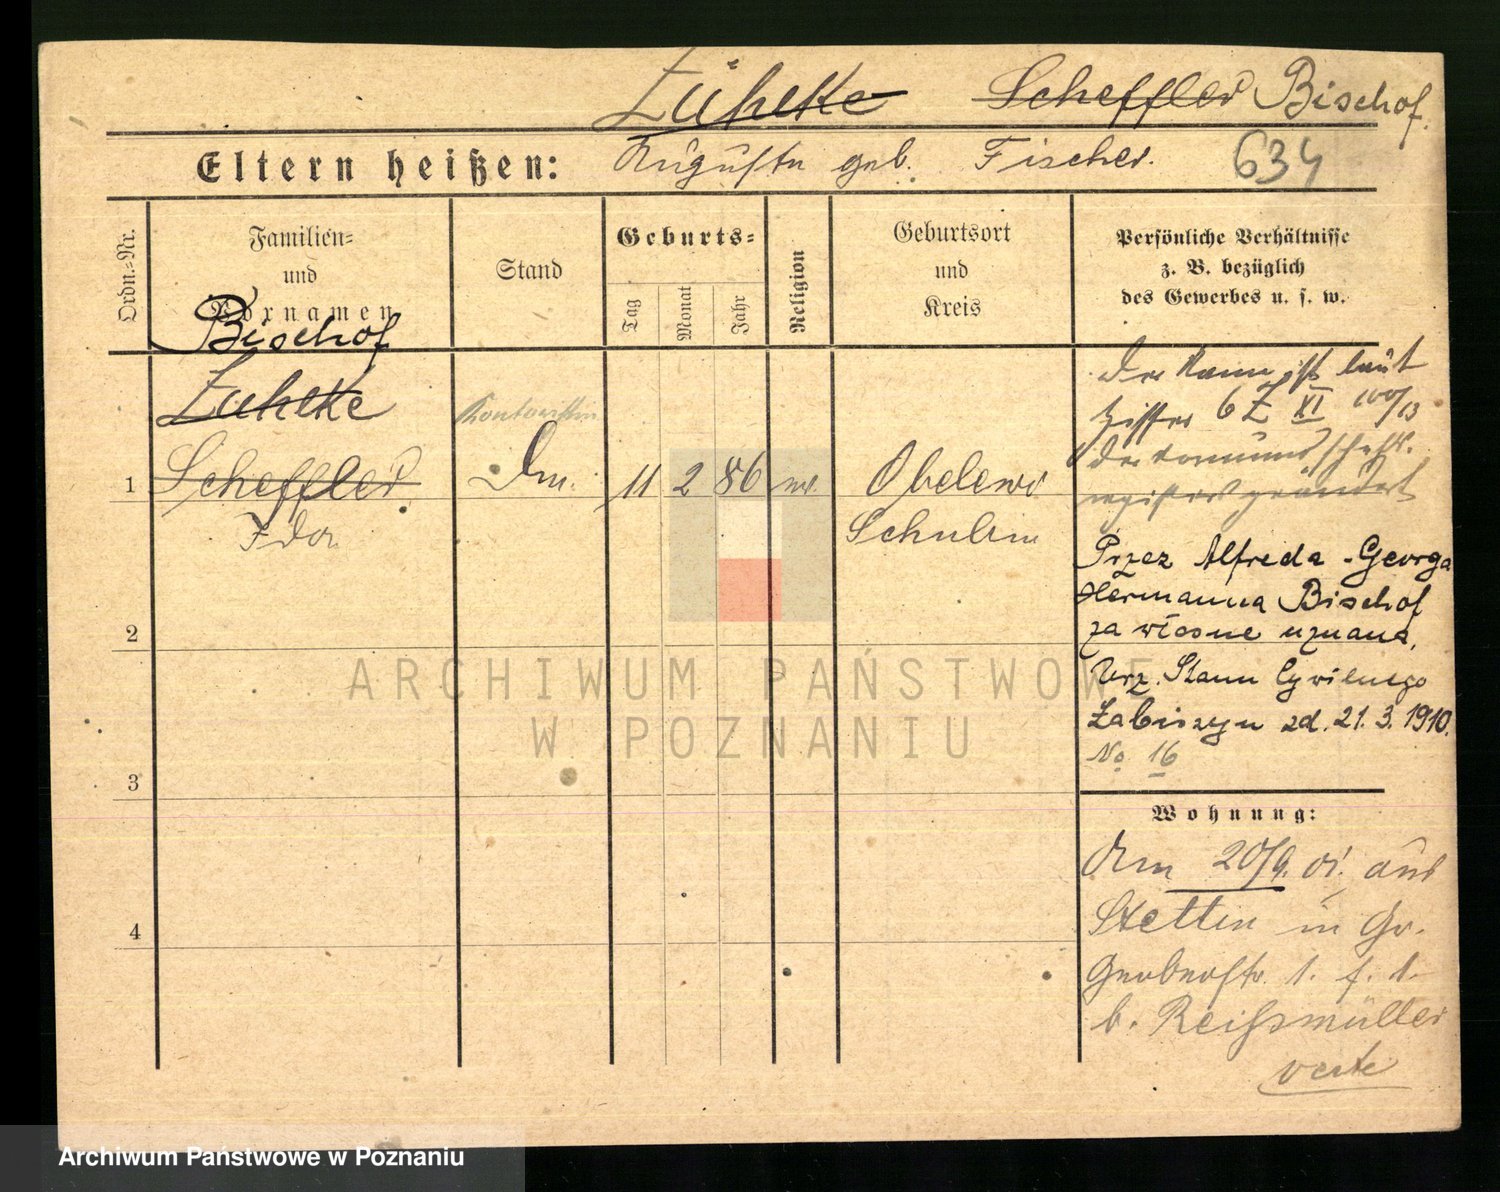 Zühlke Scheffler Bischof.
Eltern heißen: Auguste geb. Fischer. 634
Ordn.-Nr.
Familien-
und
Vornamen
Stand
Geburts-
Tag
Monat
Jahr
Religion
Geburtsort
und
Kreis
Persönliche Verhältnisse
z. B. bezüglich
des Gewerbes u. s. w.
Bischof
Zühlke
1 Scheffler 11 2 86
Ida Schubin
Der Name ist laut
Ziffer 6 Z XI 100/13
der Vormundschafts-
register geändert
Przez Alfreda-Georga
Hermanna Bischof
za własne uznana.
Urz. Stanu Cywilnego
Łabiszyn zd. 21.3.1910.
No 16
2
3
4
Wohnung:
Am 20/9. 01. aus
Stettin in Gr.
Gerberstr. 1. f. 1.
b. Reißmüller
verte
ARCHIWUM PAŃSTWOWE
W POZNANIU
Archiwum Państwowe w Poznaniu